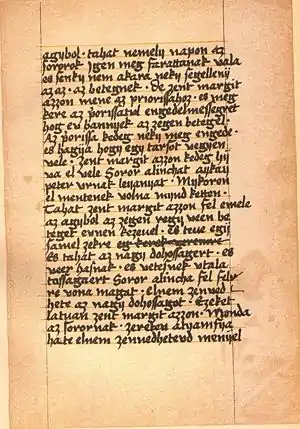 agybol · tahat nemely napon az
sororok igen meg farattanak vala
es senky nem akara neky segelleny
az az · az betegnek · De zent margit
azzon mene az priorissahoz · es meg
kere az porissatul engedelmesseget
hog ev hannyek az zegen beteggel ·
Az porissa kedeg neky meg engede ·
es hagya hogy egy tarsot vegyen
vele · zent margit azzon kedeg hy
va el vele Soror alinchat aykay
peter vrnak leyanyat · Mykoron
el mentenek volna mynd ketten ·
Tahat zent margit azzon fel emele
az agybol az zegen vegy veen be
teget evnen kezevel · es teue egy
samel zekre
es tahat az nagy dohossagert · es
veer hasnak · es vetesnek vtala
tossagaert Soror alincha fel fely
re vona magat · elnem zenved
hete az nagy dohossagot · Ezeket
latuan zent margit azzon · Monda
az sorornak · zeretev atyamfya
ha te elnem zennedhetevd menyel